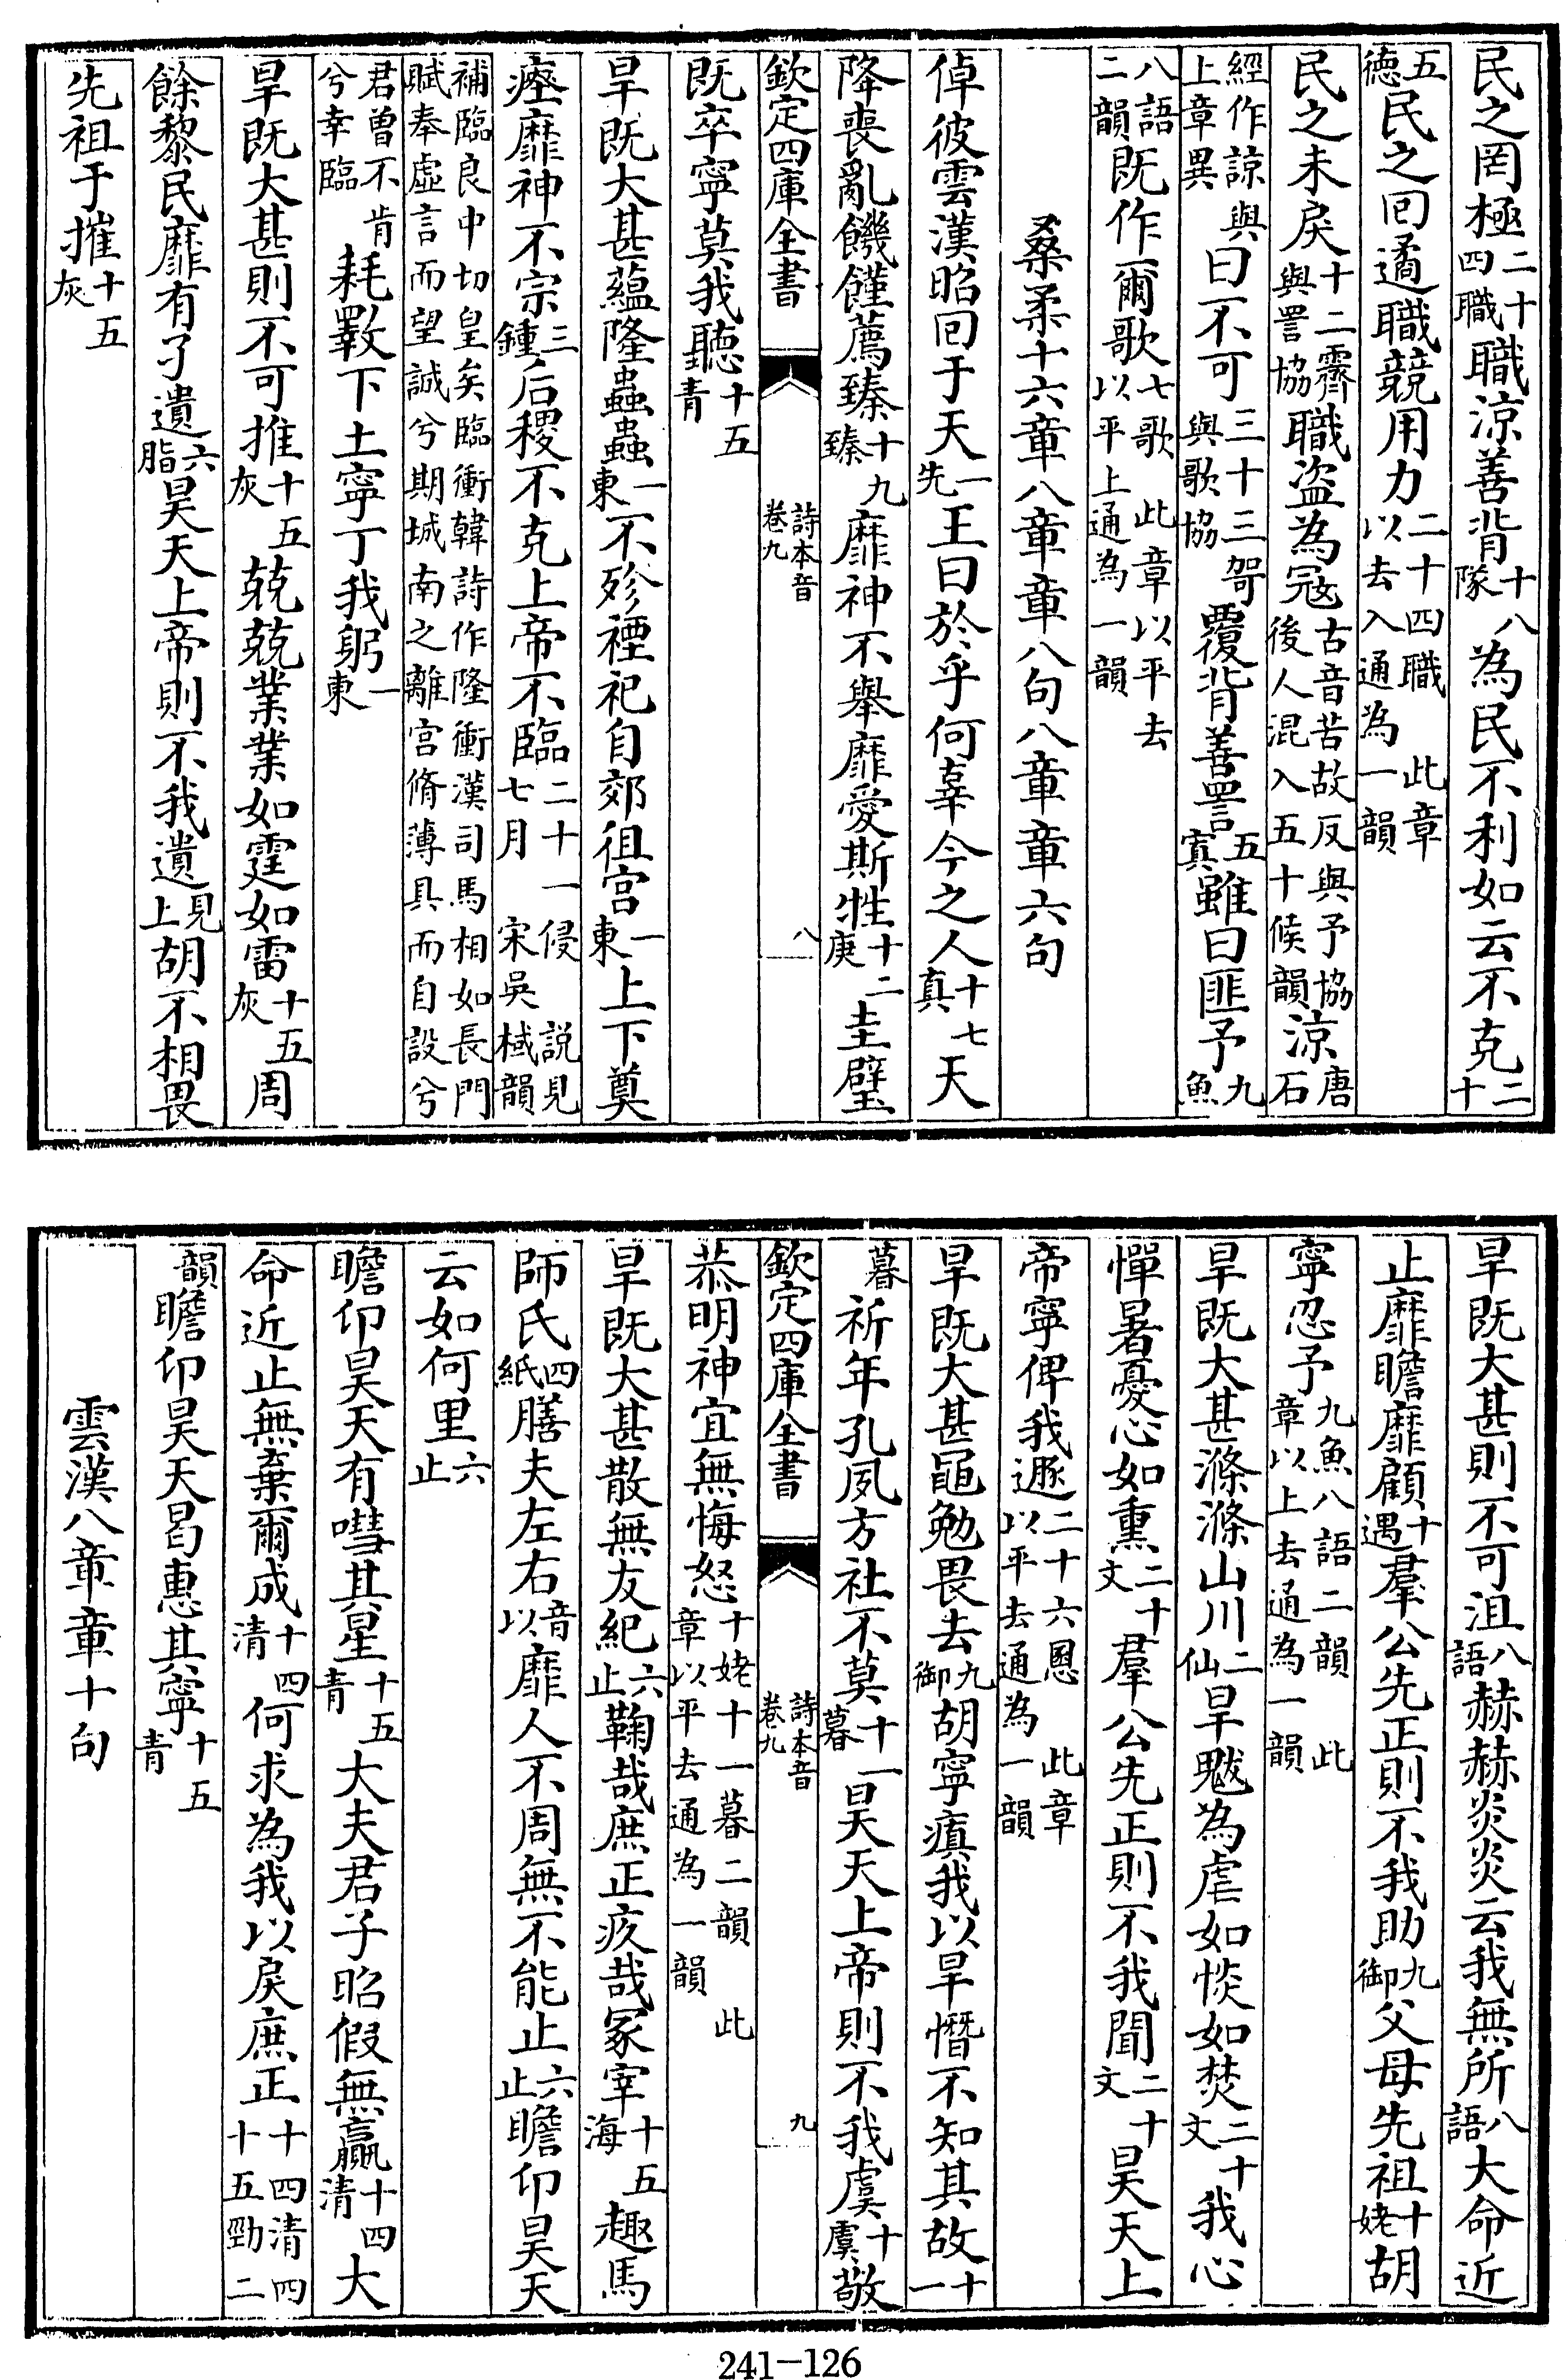 民之罔極二十四職職涼善背十八隊為民不利如云不克二十
五德民之回遹職競用力二十四職　此章以去入通為一韻
民之未戾十二霽與詈協職盜為寇古音苦故反與予協後人混入五十候韻涼唐石
經作諒與上章異曰不可三十三哿與歌協覆背善詈五寘雖曰匪予九魚
八語二韻既作爾歌七歌　此章以平去以平上通為一韻
桑柔十六章八章章八句八章章六句
倬彼雲漢昭回于天一先王曰於乎何辜今之人十七真天
降喪亂饑饉薦臻十九臻靡神不舉靡愛斯牲十二庚圭璧
欽定四庫全書　詩本音卷九　八
既卒寧莫我聽十五青
旱既大甚蘊隆蟲蟲一東不殄禋祀自郊徂宮一東上下奠
瘞靡神不宗三鍾后稷不克上帝不臨二十一侵　説見七月　宋吳棫韻
補臨良中切皇矣臨衝韓詩作隆衝漢司馬相如長門賦奉虛言而望誠兮期城南之離宮脩薄具而自設兮
君曾不肯兮幸臨耗斁下土寧丁我躬一東
旱既大甚則不可推十五灰兢兢業業如霆如雷十五灰周
餘黎民靡有孑遺六脂昊天上帝則不我遺見上胡不相畏
先祖于摧十五灰
旱既大甚則不可沮八語赫赫炎炎云我無所八語大命近
止靡瞻靡顧十遇羣公先正則不我助九御父母先祖十姥胡
寧忍予九魚八語二韻　此章以上去通為一韻
旱既大甚滌滌山川二仙旱魃為虐如惔如焚二十文我心
憚暑憂心如熏二十文羣公先正則不我聞二十文昊天上
帝寧俾我遯二十六慁　此章以平去通為一韻
旱既大甚黽勉畏去九御胡寧瘨我以旱憯不知其故十一
暮祈年孔夙方社不莫十一暮昊天上帝則不我虞十虞敬
欽定四庫全書　詩本音卷九　九
恭明神宜無悔怒十姥十一暮二韻　此章以平去通為一韻
旱既大甚散無友紀六止鞫哉庶正疚哉冢宰十五海趣馬
師氏四紙膳夫左右音以靡人不周無不能止六止瞻卬昊天
云如何里六止
瞻卬昊天有嘒其星十五青大夫君子昭假無贏十四清大
命近止無棄爾成十四清何求為我以戾庶正十四清四十五勁二
韻瞻卬昊天曷惠其寧十五青
雲漢八章章十句
241-126